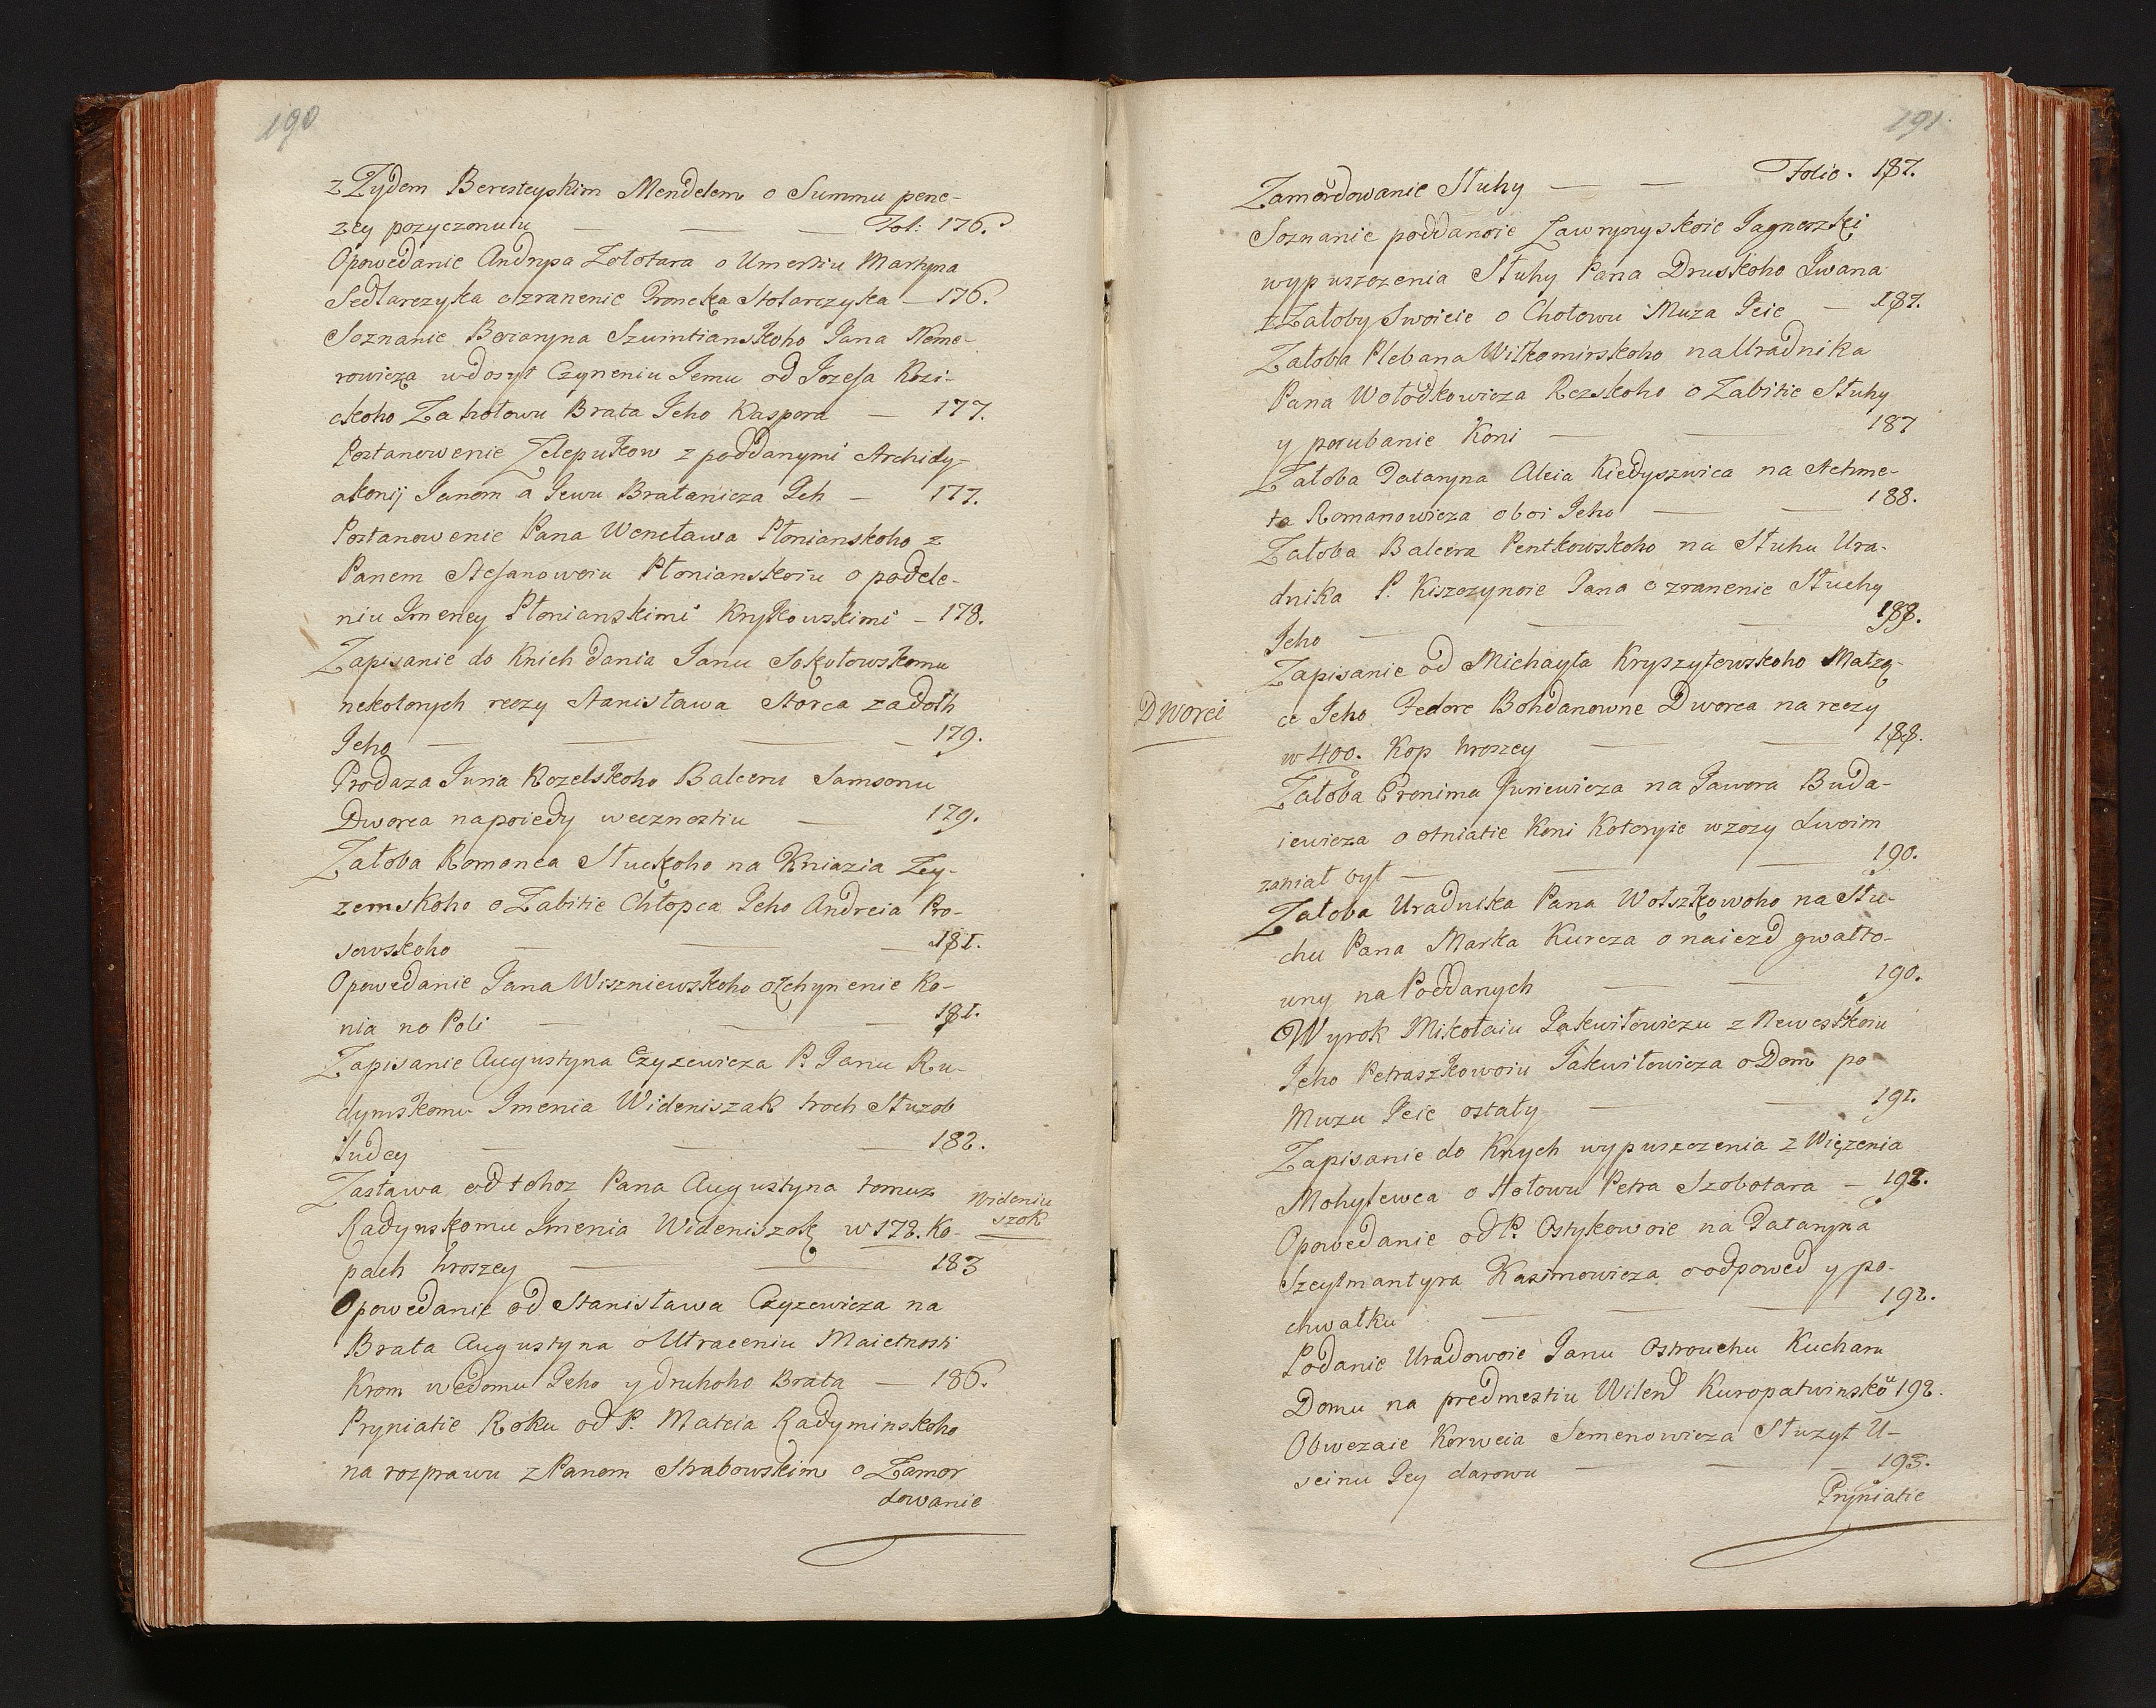 190
z Zydem Beresteyskim Mendelem o Summu pene-
zey pozyczonuiu — — — Fol: 176.
Opowedanie Andrypa Zołotara o Umerstiu Martyna
Sedlarczyka o zranenie Proncka Stolarczyka — 176.
Soznanie Boraryna Szumtianskoho Jana Neme-
rowicza w dosyt Czyneniu Jemu od Jozefa Kozi-
ckoho Za hołowu Brata Jeho Kaspora — 177.
Postanowenie Zelepukow z poddanymi Archidy-
akonij Janom a Jewu Bratanicza Jeh — 177.
Postanowenie Pana Wencława Płonianskoho z
Panem Stefanowoiu Płonianskoiu o podele-
niu Imeney Płonianskimi Krykowskimi — 178.
Zapisanie do Knich dania Janu Sokołowskomu
nekotorych reczy Stanisława Storca za dołh
Jeho — — — — 179.
Prodaza Juria Kozelskoho Balceru Samsonu
Dworca na poiedy wecznostiu — 179.
Załoba Romanca Słuckoho na Kniazia Zey-
zemskoho o Zabitie Chłopca Jeho Andreia Pro-
sowskoho — — — 181.
Opowedanie Jana Wiszniewskoho o zhynenie Ko-
nia na Poli — — — 181.
Zapisanie Augustyna Czyzewicza P. Janu Ra-
dymskomu Imenia Wideniszak troch Słuzob
ludey — — — 182.
Zastawa od tohoz Pana Augustyna tomuz
Radynskomu Imenia Wideniszok w 172. Ko-
Wideniu
szok
pach hroszey — — 183
Opowedanie od Stanisława Czyzewicza na
Brata Augustyna o Utraceniu Maietnosti
Krom wedomu Jeho y druhoho Brata — 186.
Pryniatie Roku od P. Mateia Radyminskoho
na rozprawu z Panom Strabowskim o Zamor
dowanie
191.
Zamordowanie Słuhy — — Folio. 187.
Soznanie poddanoie Zawrynyskoie Jagneszki
wypuszczenia Słuhy Pana Druskoho Iwana
z Załoby Swoieie o Hołowu Muza Jeie — 187.
Załoba Plebana Wiłkomirskoho na Uradnika
Pana Wołodkowicza Rezskoho o Zabitie Słuhy
y porubanie Koni — — 187
Załoba Tataryna Aleia Kiedyszwica na Achme-
ta Romanowicza o boi Jeho — — 188.
Załoba Balcera Pentkowskoho na Słuhu Ura-
dnika P. Kiszczynoie Jana o zranenie Słuchy
Jeho — — — 188.
Zapisanie od Michayła Kryszyłowskoho Małzo-
Dworci
ce Jeho Fedore Bohdanowne Dworca na reczy
w 400. Kop hroszey — — 188.
Załoba Eronima Juriewicza na Jawora Buda-
iewicza o otniatie Koni Kotoryie w zozy Swoim
zaniał był — — — 190.
Załoba Uradnika Pana Wołszkowoho na Słu-
chu Pana Marka Kurcza o naiezd gwałto-
wny na Poddanych — — 190.
Wyrok Mikołaiu Jakwiłowiczu z Newestkoiu
Jeho Petraszkowoiu Jakwiłowicza o Dom po
Muzu Jeie ostały — — 191.
Zapisanie do Knych wypuszczenia z Więzenia
Mohylewca o Hołowu Petra Szobotara — 192.
Opowedanie od P. Ostykowoie na Tataryna
Szeytmantyra Kasimowicza o odpowed y po-
chwałku — — — 192.
Podanie Uradowoie Janu Ostrouchu Kucharu
Domu na predmestiu Wilend Kuropatwinsko 192.
Obwezaie Korweia Semenowicza Słuzyt U-
seinu Jey darowu — — — 193.
Pryniatie